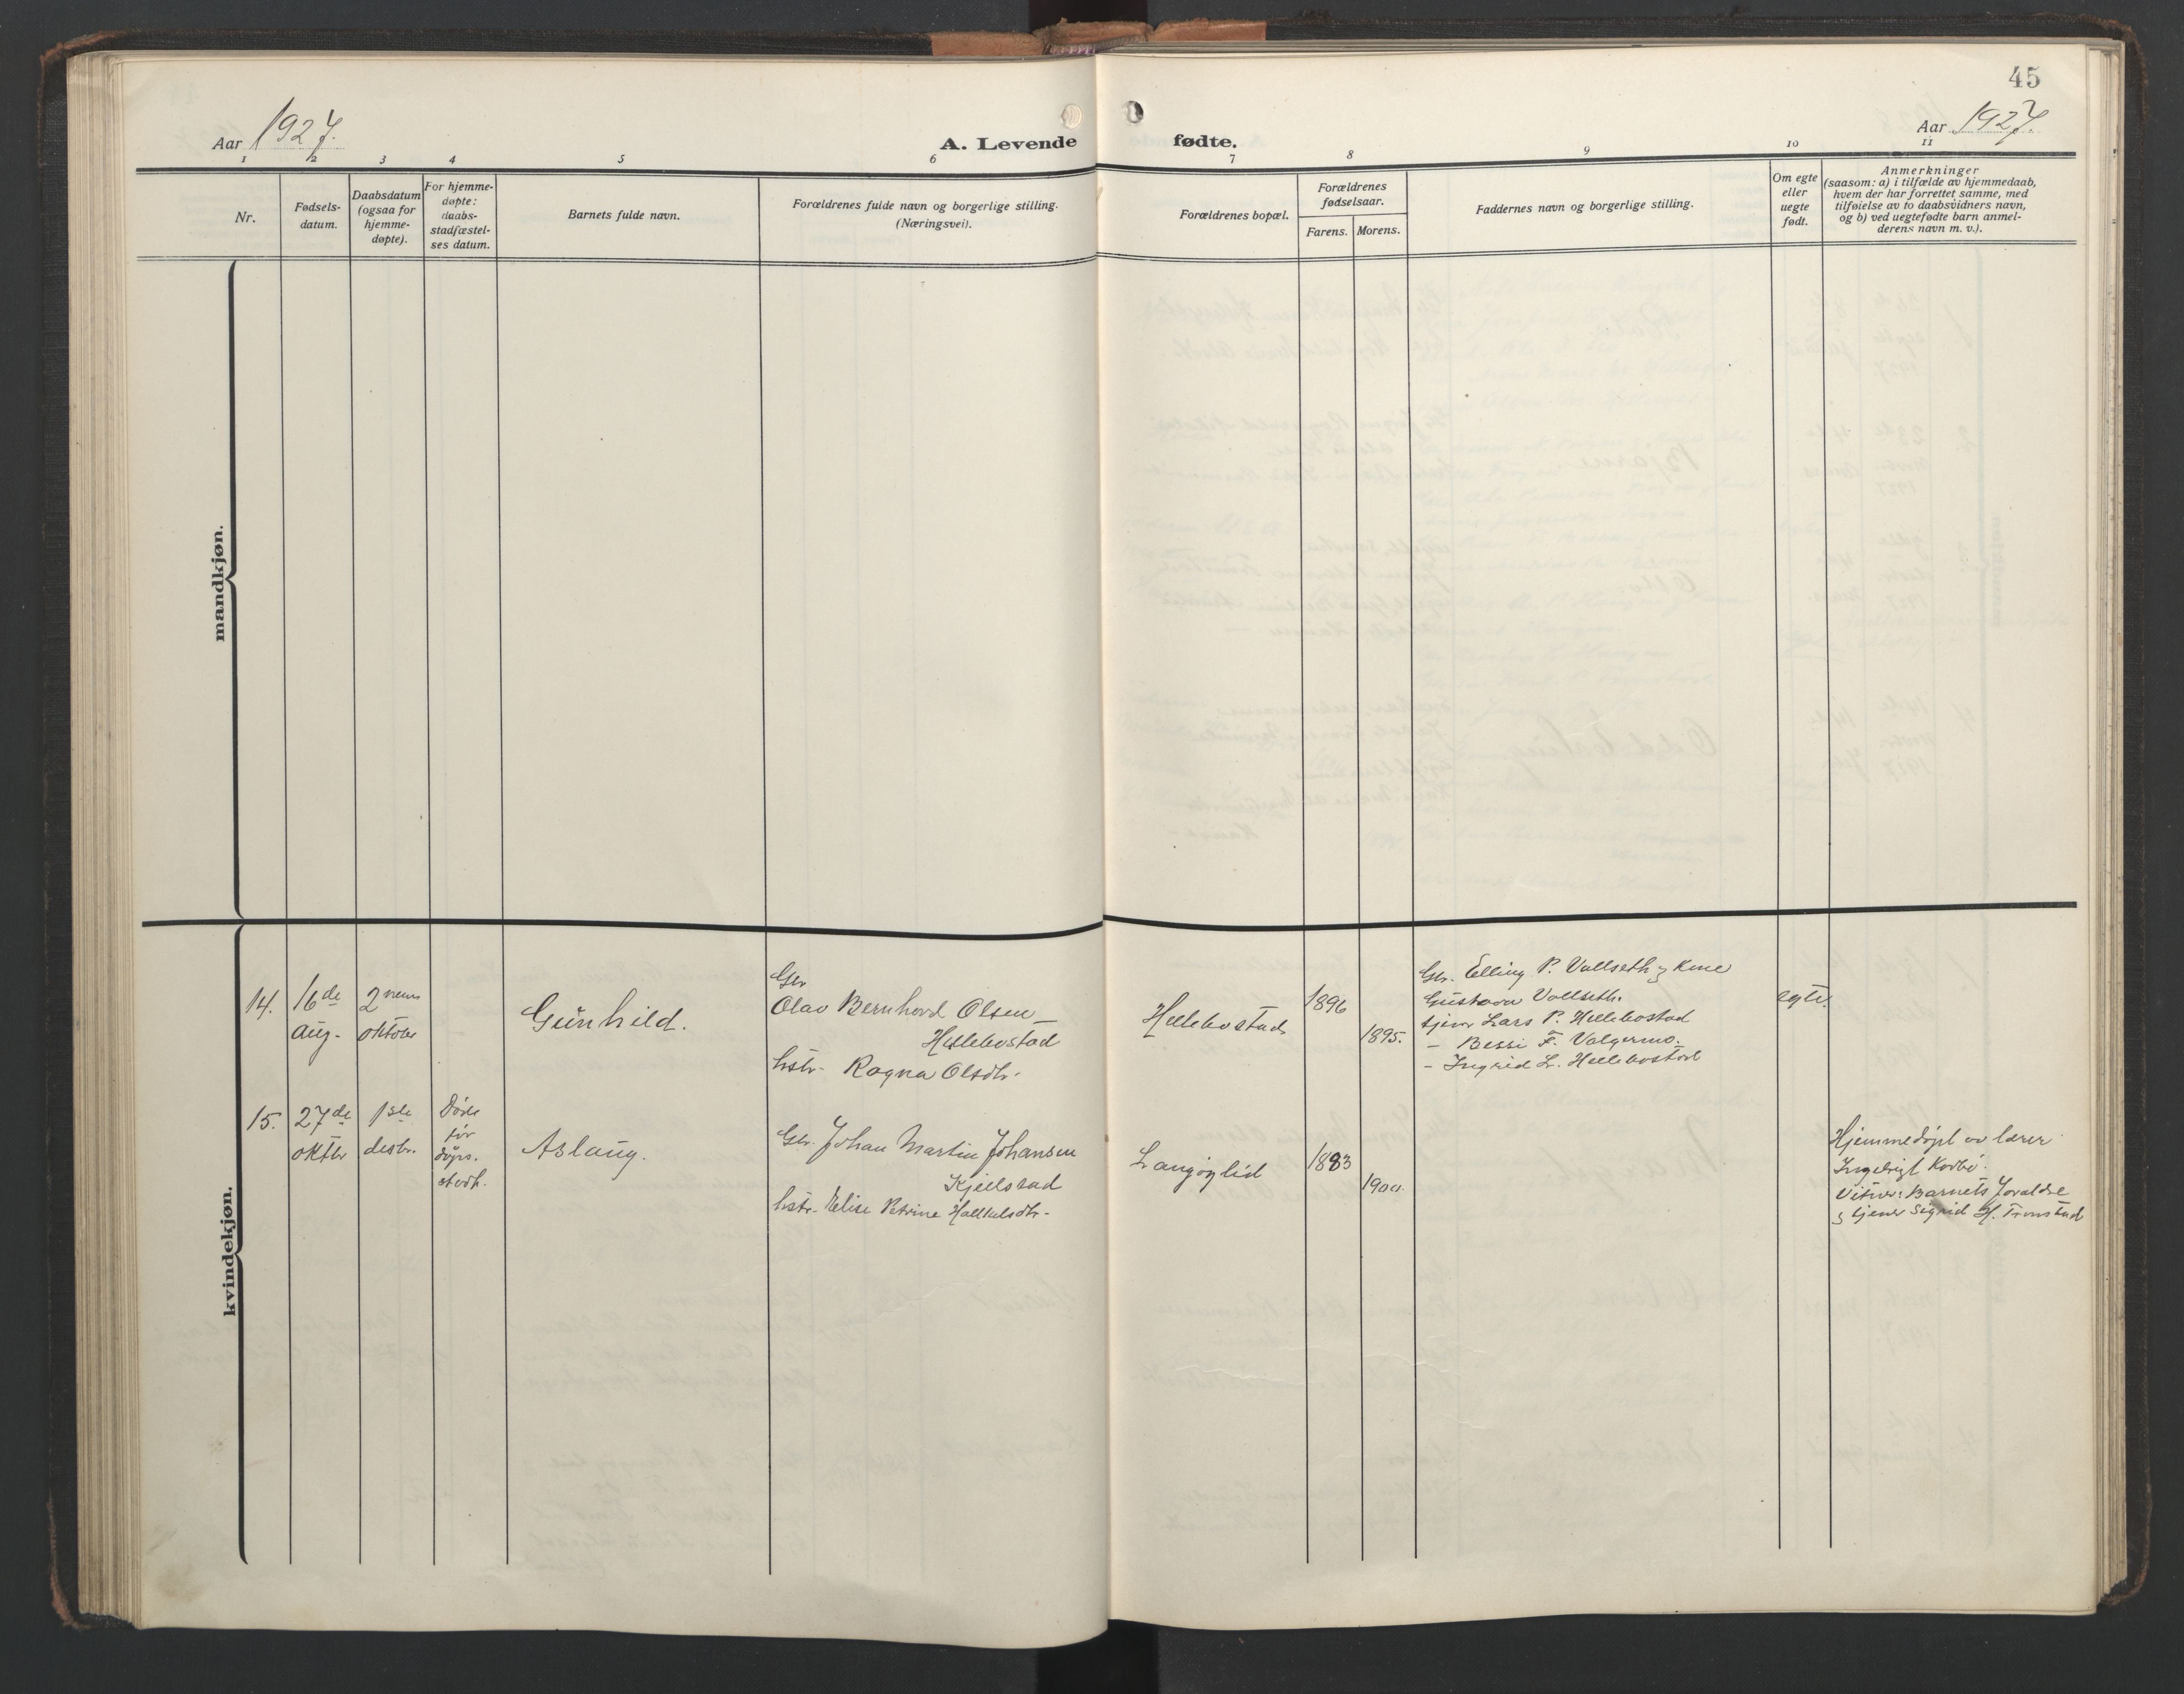 45
Aar 1927.
A. Levende fødte.
Aar 1927.
1 2 3 4 5 6 7 8 9 10 11
Nr.
Fødsels-
datum.
Daabsdatum
(ogsaa for
hjemme-
døpte).
For hjemme-
døpte:
daabs-
stadfæstel-
ses datum.
Barnets fulde navn.
Forældrenes fulde navn og borgerlige stilling.
(Næringsvei).
Forældrenes bopæl.
Forældrenes
fødselsaar.
Farens. Morens.
Faddernes navn og borgerlige stilling.
Om egte
eller
uegte
født.
Anmerkninger
(saasom: a) i tilfælde av hjemmedaab,
hvem der har forrettet samme, med
tilføielse av to daabsvidners navn,
og b) ved uegtefødte barn anmel-
derens navn m. v.).
mandkjøn.
kvindekjøn.
14.
16de
aug.
2
oktober
Gunhild.
Gbr
Olav Bernhard Olsen
Hellebostad
hstr. Ragna Olsdtr.
Hellebostad
1896
1895.
Gbr. Elling P. Vallseth & Kone
Gustava Vollseth.
tjener Lars P. Hellebostad
- Bessi F. Valgermo.
- Ingrid L. Hellebostad
egte.
15.
27de
oktbr
1ste
desbr.
Døde
før
døps.
stadf.
Aslaug.
Gbr. Johan Martin Johansen
Kjelstad
hstr. Elise Petrine Hallkelsdtr.
Langøylid
1883
1900.
Hjemmedøpt av lærer
Ingebrigt Kodbø.
Vitner: Barnets foraldre
& tjener Sigrid H. Tronstad